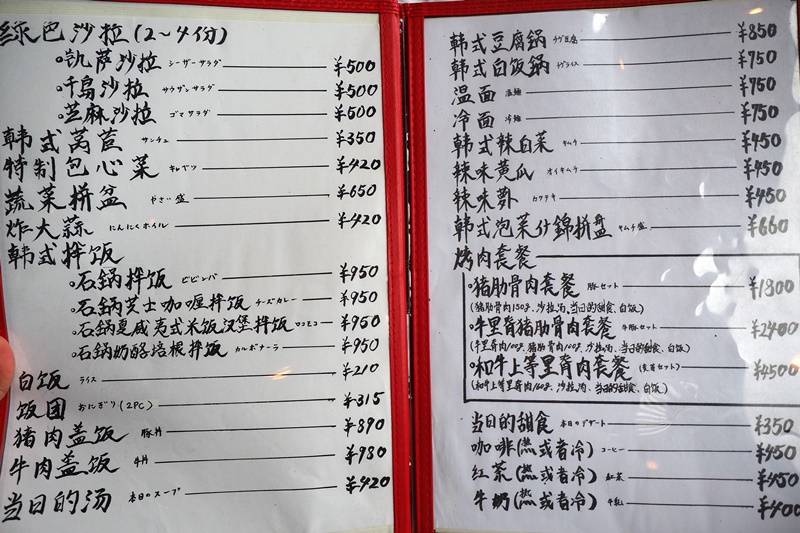 绿色沙拉(2~4份)
凯萨沙拉 シーザーサラダ ¥500
千島沙拉 サウザンサラダ ¥500
芝麻沙拉 ゴマサラダ ¥500
韩式萵苣 サンチュ ¥350
特制包心菜 キャベツ ¥420
蔬菜拼盆 やさい盛 ¥650
炸大蒜 にんにくホイル ¥420
韩式拌饭
石鍋拌饭 ビビンバ ¥950
石鍋芝士咖喱拌饭 チーズカレー ¥950
石鍋夏威夷式米饭汉堡拌饭 ロコモコ ¥950
石鍋奶酪培根拌饭 カルボナーラ ¥950
白饭 ライス ¥210
饭团 おにぎり(2PC) ¥315
猪肉盖饭 豚丼 ¥890
牛肉盖饭 牛丼 ¥980
当日的汤 本日のスープ ¥420
韩式豆腐鍋 チゲ豆腐 ¥850
韩式白饭鍋 チゲライス ¥750
温面 温麺 ¥750
冷面 冷麺 ¥750
韩式辣白菜 キムチ ¥450
辣味黄瓜 オイキムチ ¥450
辣味 カクテキ ¥450
韩式泡菜什錦拼盘 キムチ盛 ¥660
烤肉套餐
猪肋骨肉套餐 豚セット ¥1800
(猪肋骨肉150g、沙拉、汤、当日的甜食、白饭)
牛里脊猪肋骨肉套餐 牛豚セット ¥2400
(牛里脊肉100g、猪肋骨肉100g、沙拉、汤、当日的甜食、白饭)
和牛上等里脊肉套餐 ¥4500
(和牛上等里脊肉160g、沙拉、汤、当日的甜食、白饭)
当日的甜食 本日のデザート ¥350
咖啡(热或者冷) コーヒー ¥450
红茶(热或者冷) 紅茶 ¥450
牛奶(热或者冷) 牛乳 ¥400